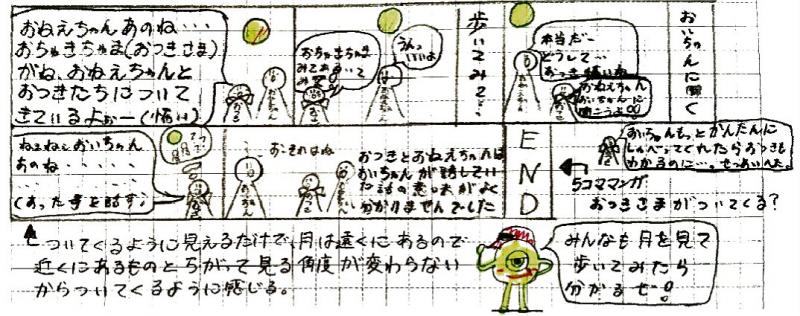 おねえちゃんあのね・・・
おちゃきちゃま(おつきさま)
がね、おねえちゃんと
おつきたちについて
きているよぉー(怖い)
おちゃきちゃま
みてあるいて
みて
うんっ
いいよ
歩いてみて・・
本当だー
どうして・・
おつき怖いね
おねえちゃん
おいちゃんに
聞こうよ!!
おいちゃんに聞く
ねぇねぇおいちゃん
あのね・・・・・・
・・・・・・
(あった事を話す)
おこれはね
おつきとおねえちゃんは
おいちゃんが話してい
た話の意味がよく
分かりませんでした
END
おいちゃんもっとかんたんに
しゃべってくれたらおつきも
わかるのに・・。
5コママンガ
おつきさまがついてくる?
ついてくるように見えるだけで、月は遠くにあるので
近くにあるものとちがって見る角度が変わらない
からついてくるように感じる。
みんなも月を見て
歩いてみたら
分かるぜ!!